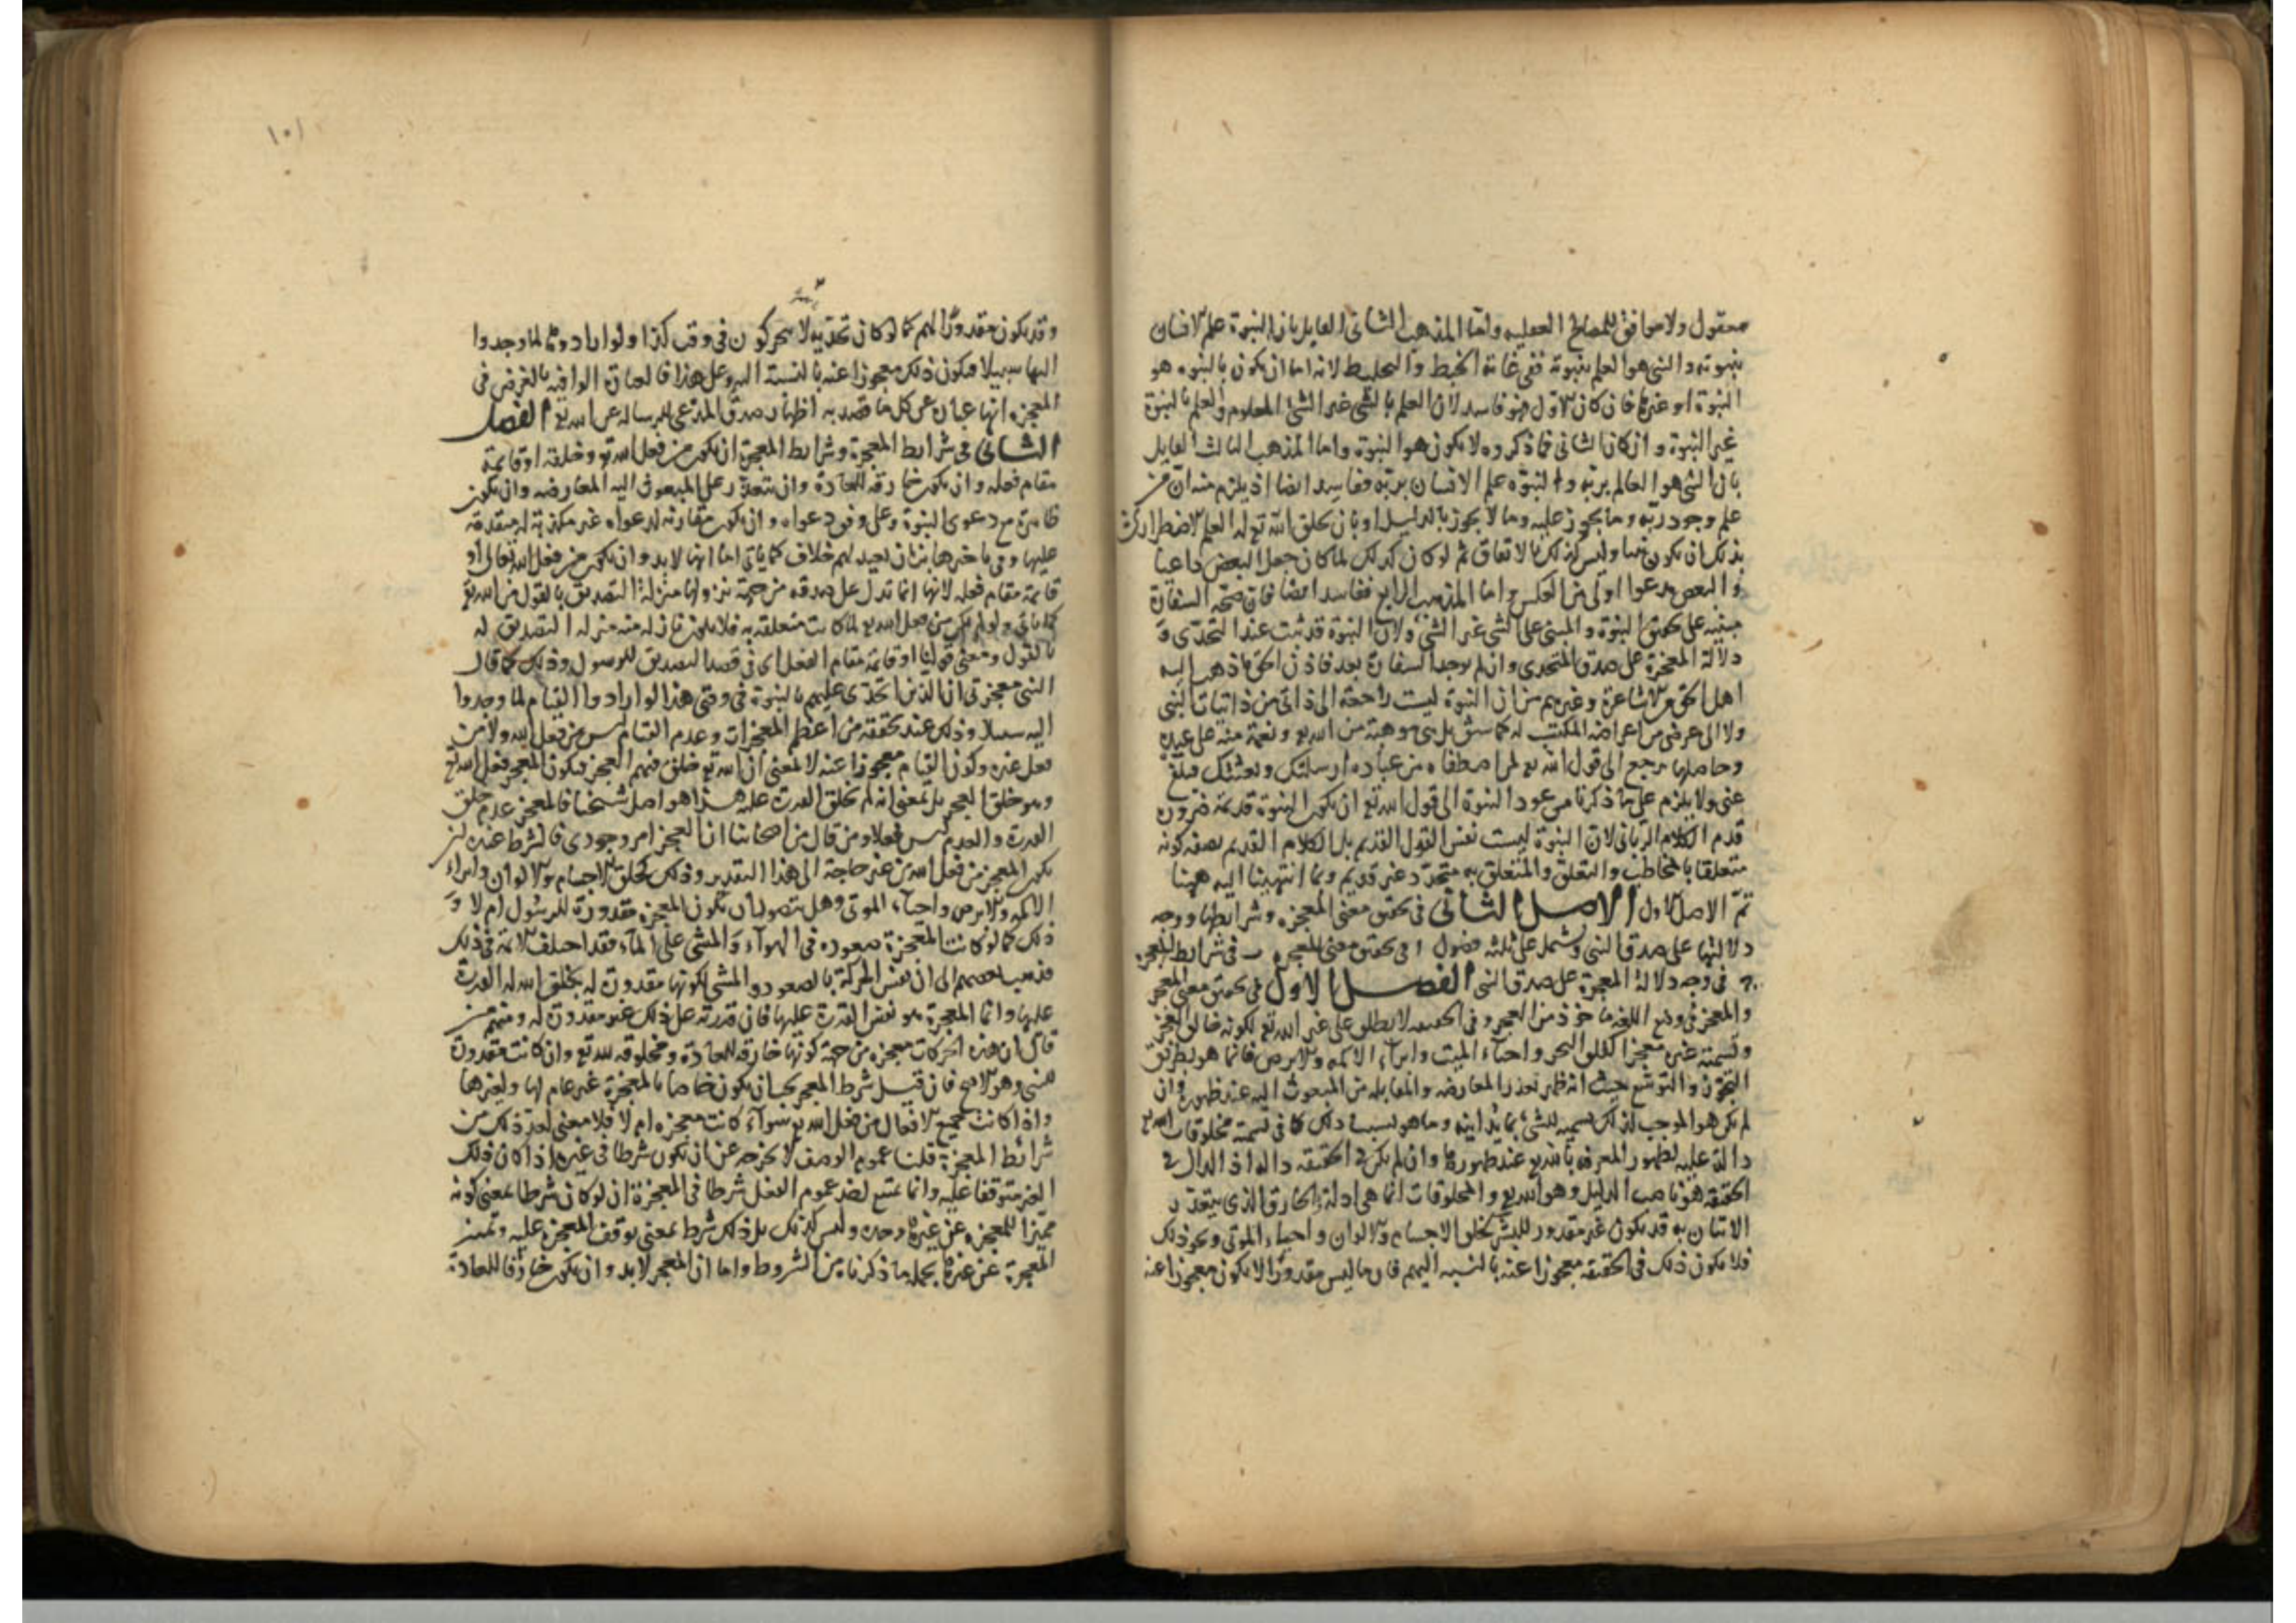 معقول ولا موافق للمصالح العقليه واما المذهب الثانى القايل بان النبوة علم الانسان
بنبوته والنبى هو العلم بنبوته ففى غاية الخبط والتخليط لانه اما ان يكون بالنبوه هو
النبوة او غيرها فان كان الاول فهو فاسد لان العلم بالشى غير الشئ المعلوم والعلم بالنبوة
غير النبوة وان كان الثانى فما ذكروه لا يكون هو النبوة واما المذهب الثالث القايل
بان النبى هو العالم بربه والنبوه علم الانسان بربه ففاسد ايضا اذ يلزم منه ان من
علم وجود ربه وما يجوز عليه وما لا يجوز بالدليل او بان يخلق الله تع له العلم الاضطرارى
بذلك ان يكون نبيا وليس كذلك بالاتفاق ثم لو كان كذلك لما كان جعل البعض داعيا
والبعض مدعوا اولى من العكس واما المذهب الرابع ففاسد ايضا فان صحة السفارة
مبنيه على تحقق النبوة والمبنى على الشى غير الشئ ولان النبوة قد ثبت عند التحدى و
دلالة المعجزة على صدق المتحدى وان لم يوجد السفارة بعد فاذن الحق ما ذهب اليه
اهل الحق من الاشاعرة وغيرهم من ان النبوة ليست راجعة الى ذاتى من ذاتيات النبى
ولا الى عرض من اعراضه المكتسبه له كما سبق بل هى موهبة من الله تع ونعمة منه على عبده
وحاصلها يرجع الى قول الله تع لمن اصطفاه من عباده ارسلتك وبعثتك فبلغ
عنى ولا يلزم على ما ذكرنا من عود النبوة الى قول الله تع ان يكون النبوة قديمة ضرورة
قدم الكلام الربانى لان النبوة ليست نفس القول القديم بل الكلام القديم بصفه كونه
متعلقا بالمخاطب والتعلق والمتعلق به متجدد غير قديم وبما انتهينا اليه ههنا
تم الاصل الاول الاصل الثانى فى تحقيق معنى المعجزه وشرايطها ووجه
دلالتها على صدق النبى ويشتمل على ثلثه فصول ا فى تحقيق معنى المعجزه ب فى شرايط المعجزه
ج فى وجه دلالة المعجزة على صدق النبى الفصل الاول فى تحقيق معنى المعجز
والمعجز فى وضع اللغه ماخوذ من العجز وفى الحقيقه لا يطلق على غير الله تع لكونه خالق العجز
وتسميته غيره معجزا كفلق البحر واحياء الميت وابراء الاكمه والابرص فانما هو بطريق
التجوز والتوسع حيث انه ظهر تعذر المعارضه والمقابله من المبعوث اليه عند ظهوره وان
لم يكن هو الموجب لذلك تسميه للشئ بما يدانيه وما هو بسبب ذلك كما فى تسمية مخلوقات الله تع
دالة عليه لظهور المعرفه بالله تع عند ظهورها وان لم يكن فى الحقيقه داله اذ الدال فى
الحقيقه هو ناصب الدليل وهو الله تع والمخلوقات انما هى ادلة الخارق الذى يتعذر
الاتيان به قد يكون غير مقدور للبشر كخلق الاجسام والالوان واحياء الموتى ونحو ذلك
فلا يكون ذلك فى الحقيقه معجوزا عنه بالنسبه اليهم فان ما ليس مقدورا لا يكون معجوزا عنه
١٠١
وقد يكون مقدورا لهم كما لو كان تحديه لا يتحركون فى وقت كذا ولو ارادوها لما وجدوا
اليها سبيلا فيكون ذلك معجوزا عنه بالنسبة اليه وعلى هذا فالعبارة الوافيه بالغرض فى
المعجزه انها عباره عن كل ما قصد به اظهار صدق المدعى للرساله عن الله تع الفصل
الثانى فى شرايط المعجزة وشرايط المعجزة ان يكون من فعل الله تع وخلقه او قايمة
مقام فعله وان يكون خارقه للعادة وان يتعذر على المبعوث اليه المعارضه وان يكون
ظاهرة مع دعوى النبوة وعلى وفق دعواه وان يكون مقارنه لدعواه غير مكذبة له متقدمة
عليها وفى تاخرها بزمان بعيد لهم خلاف كما ياتى اما انها لابد وان يكون من فعل الله تعالى او
قايمة مقام فعله لانها انما تدل على صدقه من جهة نزولها منزلة التصديق بالقول من الله تع
كما ياتى ولو لم يكن من فعل الله تع لما كانت متعلقه به فلا يكون نازله منه منزله التصديق له
بالقول ومعنى قولنا او قايمة مقام الفعل اى فى قصد التصديق للرسول وذلك كما قال
النبى معجزتى ان الذين اتحدى عليهم بالنبوة فى وقتى هذا لو ارادوا القيام لما وجدوا
اليه سبيلا وذلك عند تحققه من اعظم المعجزات وعدم القيام ليس من فعل الله ولا من
فعل غيره وكون القيام معجوزا عنه لا لمعنى ان الله تع خلق فيهم العجز فيكون المعجز فعل الله تع
وهو خلق العجز بل بمعنى انه لم يخلق القدرة عليه هذا هو اصل شيخنا فالمعجز عدم خلق
القدرة والعدم ليس فعلا ومن قال من اصحابنا ان العجز امر وجودى فالشرط عنده ان
يكون المعجز من فعل الله من غير حاجة الى هذا التقدير وذلك كخلق الاجسام والالوان وابراء
الاكمه والابرص واحياء الموتى وهل يتصور ان يكون المعجزه مقدورة للرسول ام لا و
ذلك كما لو كانت المعجزة صعوده فى الهواء والمشى على الماء فقد اختلف الائمة فى ذلك
فذهب بعضهم الى ان نفس الحركة بالصعود والمشى لكونها مقدورة له بخلق الله له القدرة
عليها وانما المعجزة هو نفس القدرة عليها فان قدرته على ذلك غير مقدورة له ومنهم من
قال ان هذه الحركات معجزه من جهة كونها خارقه للعادة ومخلوقه لله تع وان كانت مقدورة
للنبى وهو الاصح فان قيل شرط المعجز يجب ان يكون خاصا بالمعجزة غير عام لها ولغيرها
واذا كانت جميع الافعال من فعل الله تع سواء كانت معجزه ام لا فلا معنى لعد ذلك من
شرائط المعجزة قلنا عموم الوصف لا يخرجه عن ان يكون شرطا فى غيره اذا كان ذلك
الغير متوقفا عليه وانما يمتنع لضر عموم الفعل شرطا فى المعجزة ان لو كان شرطا بمعنى كونه
مميزا للمعجزه عن غيرها وحده وليس كذلك بل ذلك شرط بمعنى توقف المعجزه عليه وتميز
المعجزة عن غيرها بجملة ما ذكرناه من الشروط واما ان المعجز لابد وان يكون خارقا للعادة